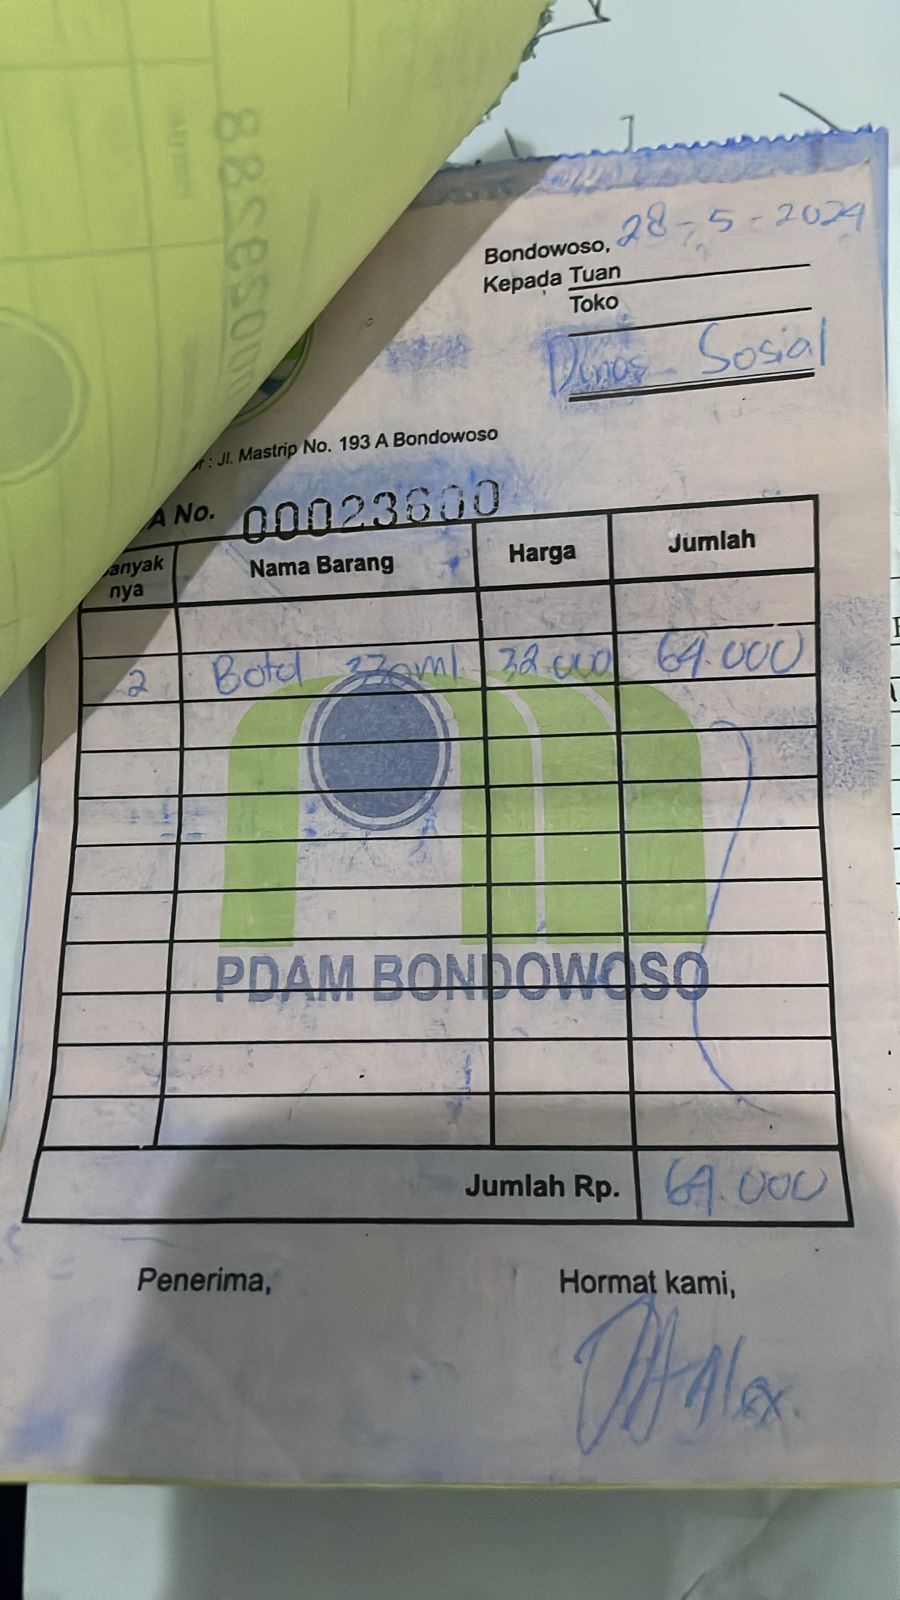 Bondowoso, 28-5-2024
Kepada Tuan
Toko
Dinas Sosial
: Jl. Mastrip No. 193 A Bondowoso
A No. 00023600
anyak nya Nama Barang Harga Jumlah
2 Botol 330ml 32.000 64.000
PDAM BONDOWOSO
Jumlah Rp. 64.000
Penerima, Hormat kami,
Alex.